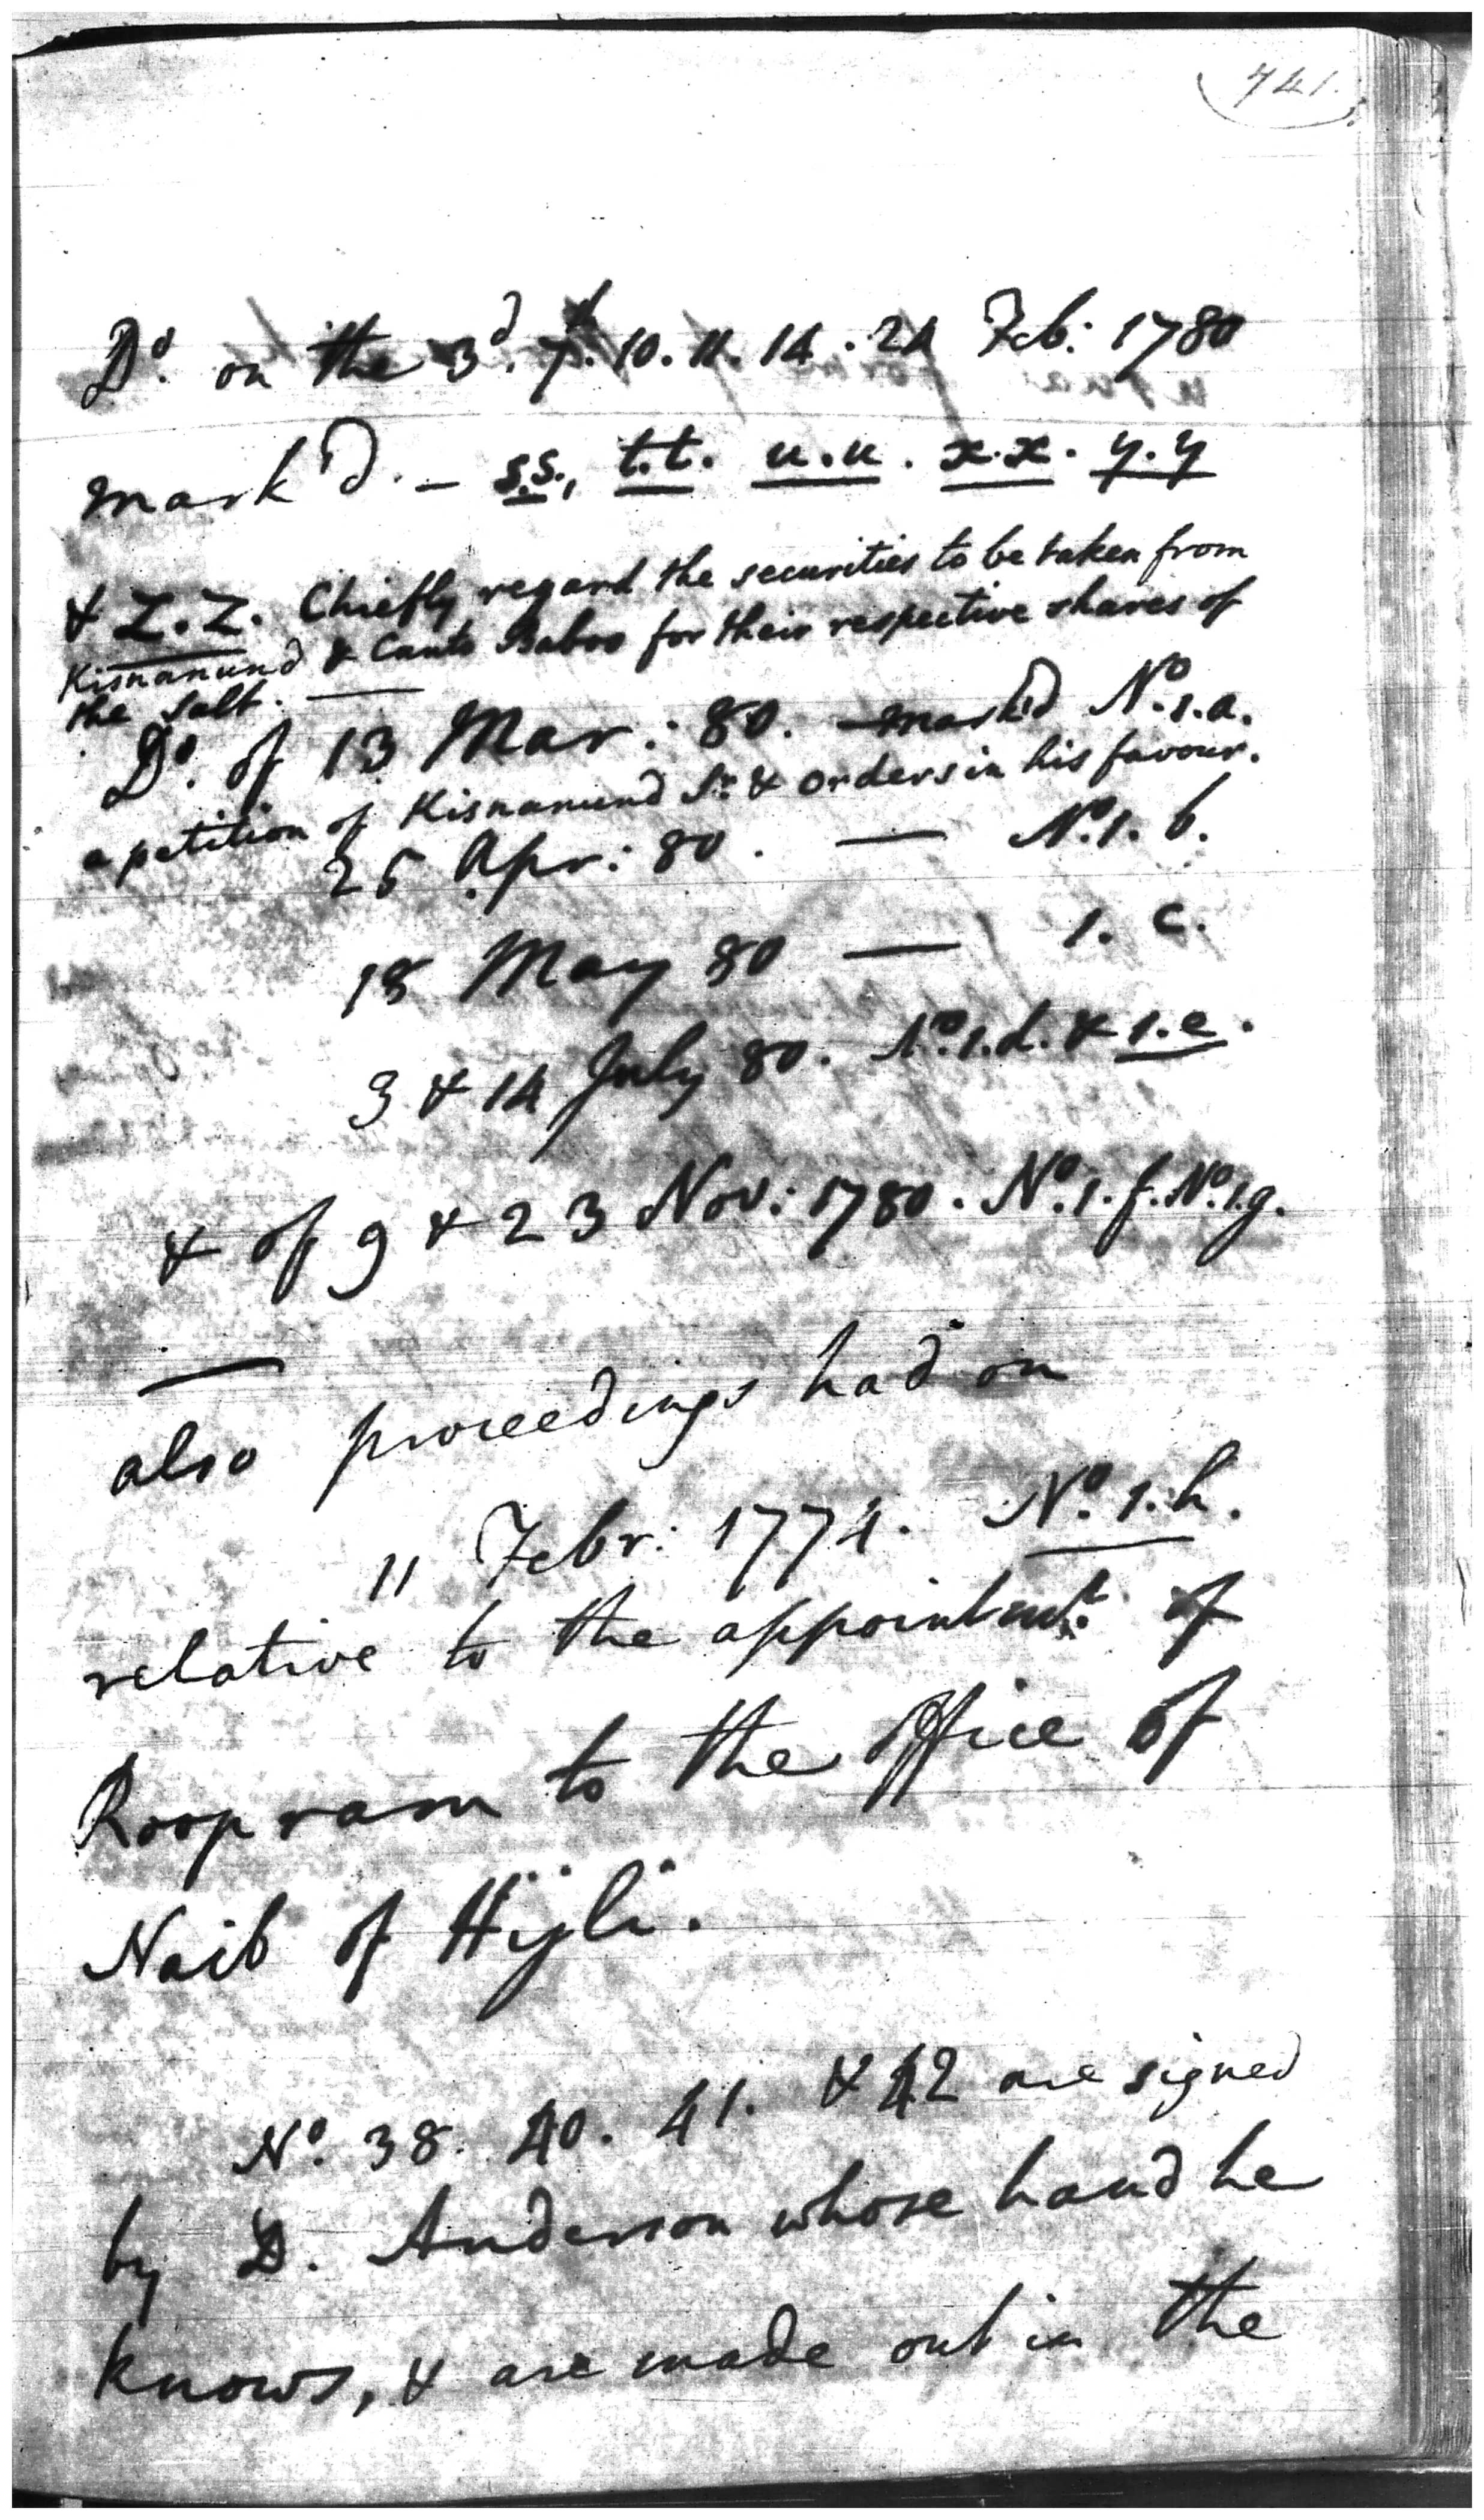 741.
Do. on the 3d. 7th. 10. 11. 14. 24 Feb: 1780
mark'd. - s.s., t.t. u.u. x.x. y.y
& Z.Z. Chiefly regard the securities to be taken from
Kisnanund & Canto Baboo for their respective shares of
the Salt.
Do. of 13 Mar: 80. - mark'd No. 1.a.
a petition of Kisnanund Sr. & orders in his favour.
25 Apr: 80. — No. 1. b.
18 May 80 — 1. c.
3 & 14 July 80. No. 1.d. & 1.e.
& of 9 & 23 Nov: 1780. No. 1. f. No. 1.g.
also proceedings had on
11 Febr: 1774. No. 1.h.
relative to the appointmt. of
Roopram to the office of
Naib of Hijli.
No. 38. 40. 41. & 42 are signed
by D. Anderson whose hand he
knows, & are made out in the